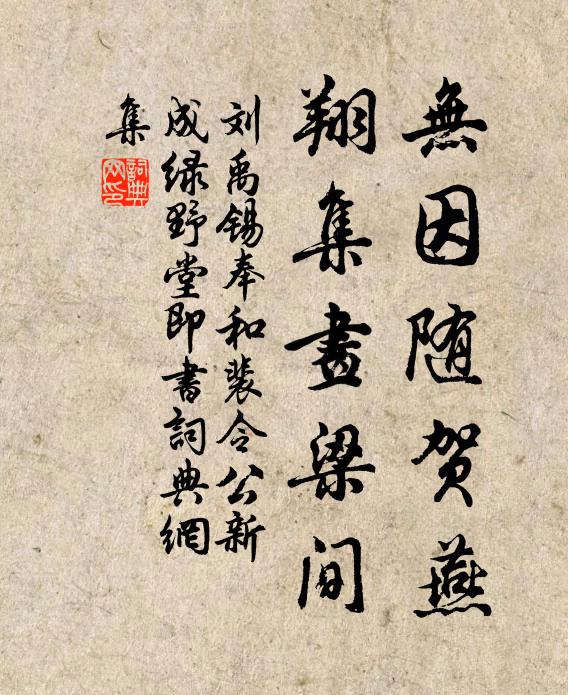 無因随贺燕
翔集畫梁间
刘禹锡奉和裴令公新
成绿野堂即書詞典網
集
詞典
网印